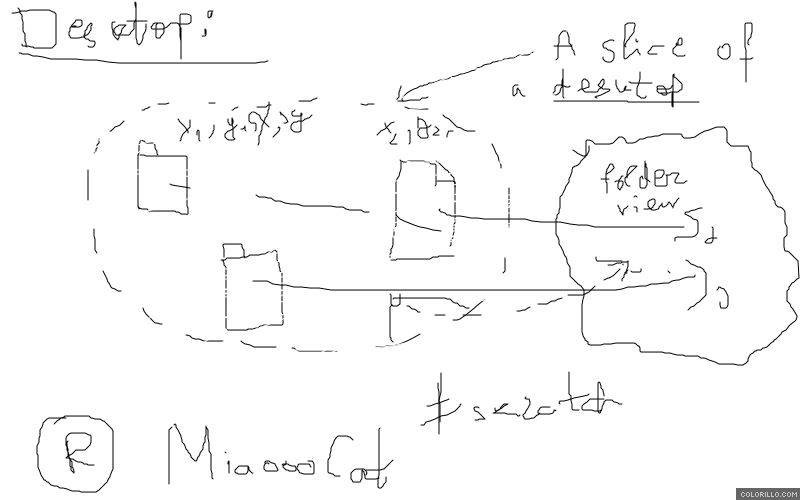 Desktop:
A slice of
a desktop
x1, y1, x, y
x2, y2,
folder
view
R MiaoooCat
COLORILLO.COM